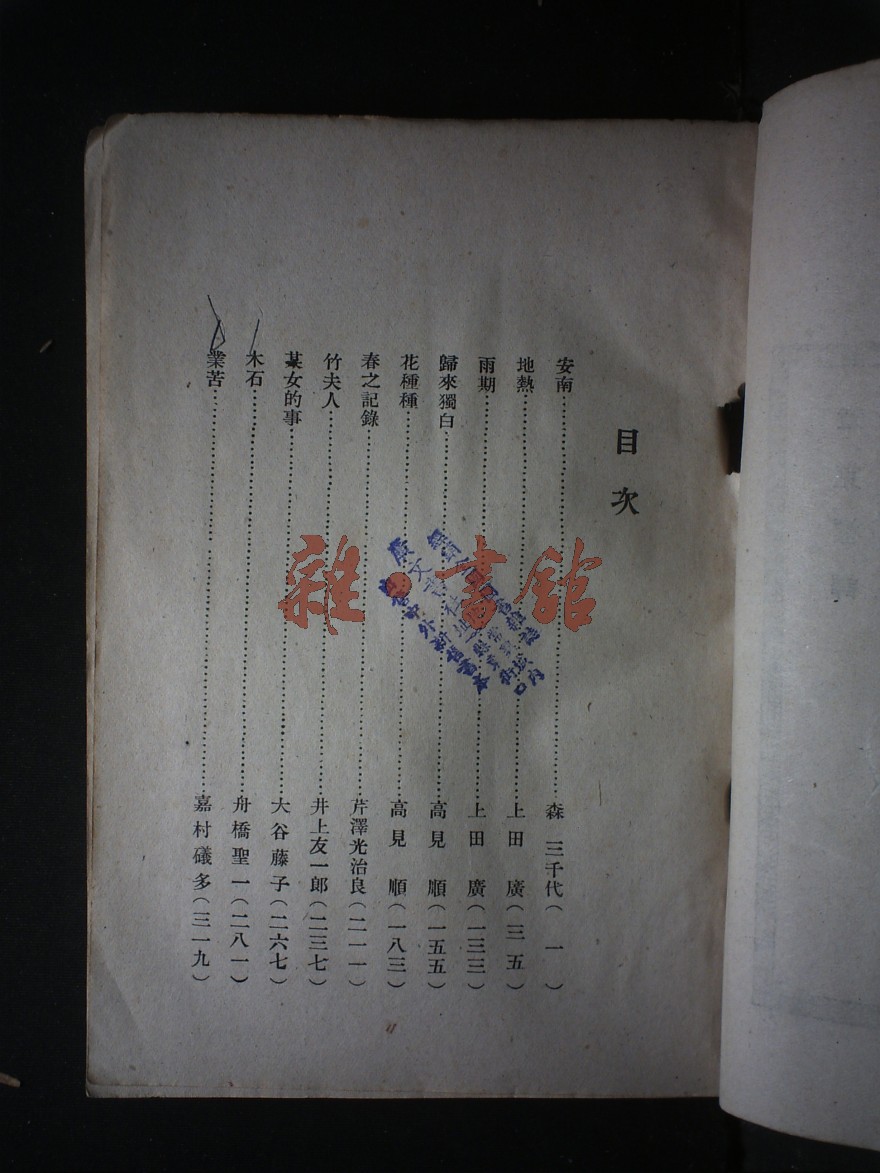 目次
安南……森 三千代(一)
地熱……上田 廣(三五)
雨期……上田 廣(一三三)
歸來獨白……高見 順(一五五)
花種種……高見 順(一八三)
春之記錄……芹澤光治良(二一一)
竹夫人……井上友一郎(二三七)
某女的事……大谷藤子(二六七)
木石……舟橋聖一(二八一)
業苦……嘉村礒多(三一九)
雜·書館